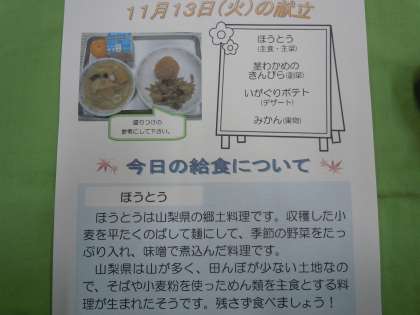 11月13日(火)の献立
ほうとう
(主食・主菜)
茎わかめの
きんぴら(副菜)
いがぐりポテト
(デザート)
みかん(果物)
盛りつけの
参考にして下さい。
今日の給食について
ほうとう
ほうとうは山梨県の郷土料理です。収穫した小
麦を平たくのばして麺にして、季節の野菜をた
っぷり入れ、味噌で煮込んだ料理です。
山梨県は山が多く、田んぼが少ない土地なの
で、そばや小麦粉を使っためん類を主食とする料
理が生まれたそうです。残さず食べましょう！